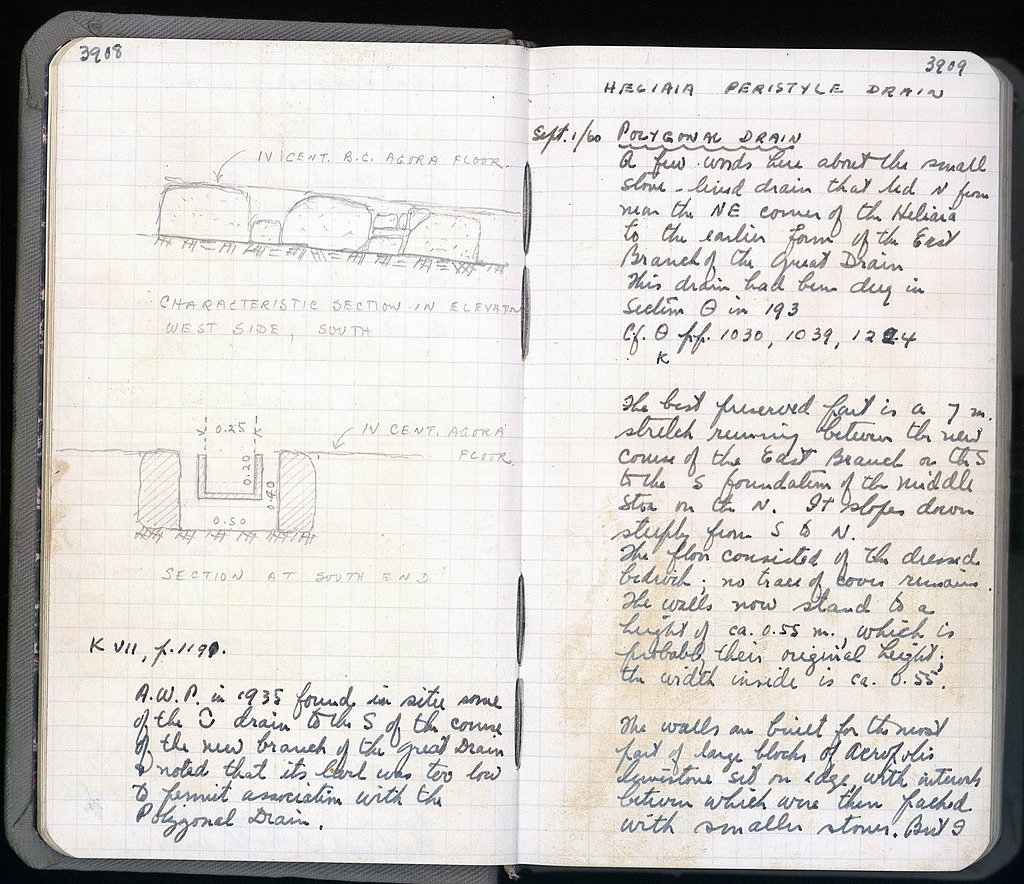 3908
IV CENT. B.C. AGORA FLOOR.
CHARACTERISTIC SECTION IN ELEVATION
WEST SIDE, SOUTH
0.25
IV CENT. AGORA
FLOOR
0.20
0.40
0.50
SECTION AT SOUTH END
K VII, p. 1191.
A.W.P. in 1935 found in situ some
of the drain to the S of the course
of the new branch of the Great Drain
& noted that its level was too low
to permit association with the
Polygonal Drain.
3909
HELIAIA PERISTYLE DRAIN
Sept. 1/60 POLYGONAL DRAIN
A few words here about the small
stone-lined drain that led N from
near the NE corner of the Heliaia
to the earlier form of the East
Branch of the Great Drain
This drain had been dug in
Section Θ in 193
Cf. Θ pp. 1030, 1039, 1224
K
The best preserved part is a 7 m.
stretch running between the new
course of the East Branch on the S
to the S foundation of the Middle
Stoa on the N. It slopes down
steeply from S to N.
The floor consisted of the dressed
bedrock; no trace of cover remains.
The walls now stand to a
height of ca. 0.55 m., which is
probably their original height;
the width inside is ca. 0.55.
The walls are built for the most
part of large blocks of Acropolis
limestone set on edge with intervals
between which were then packed
with smaller stones. But I